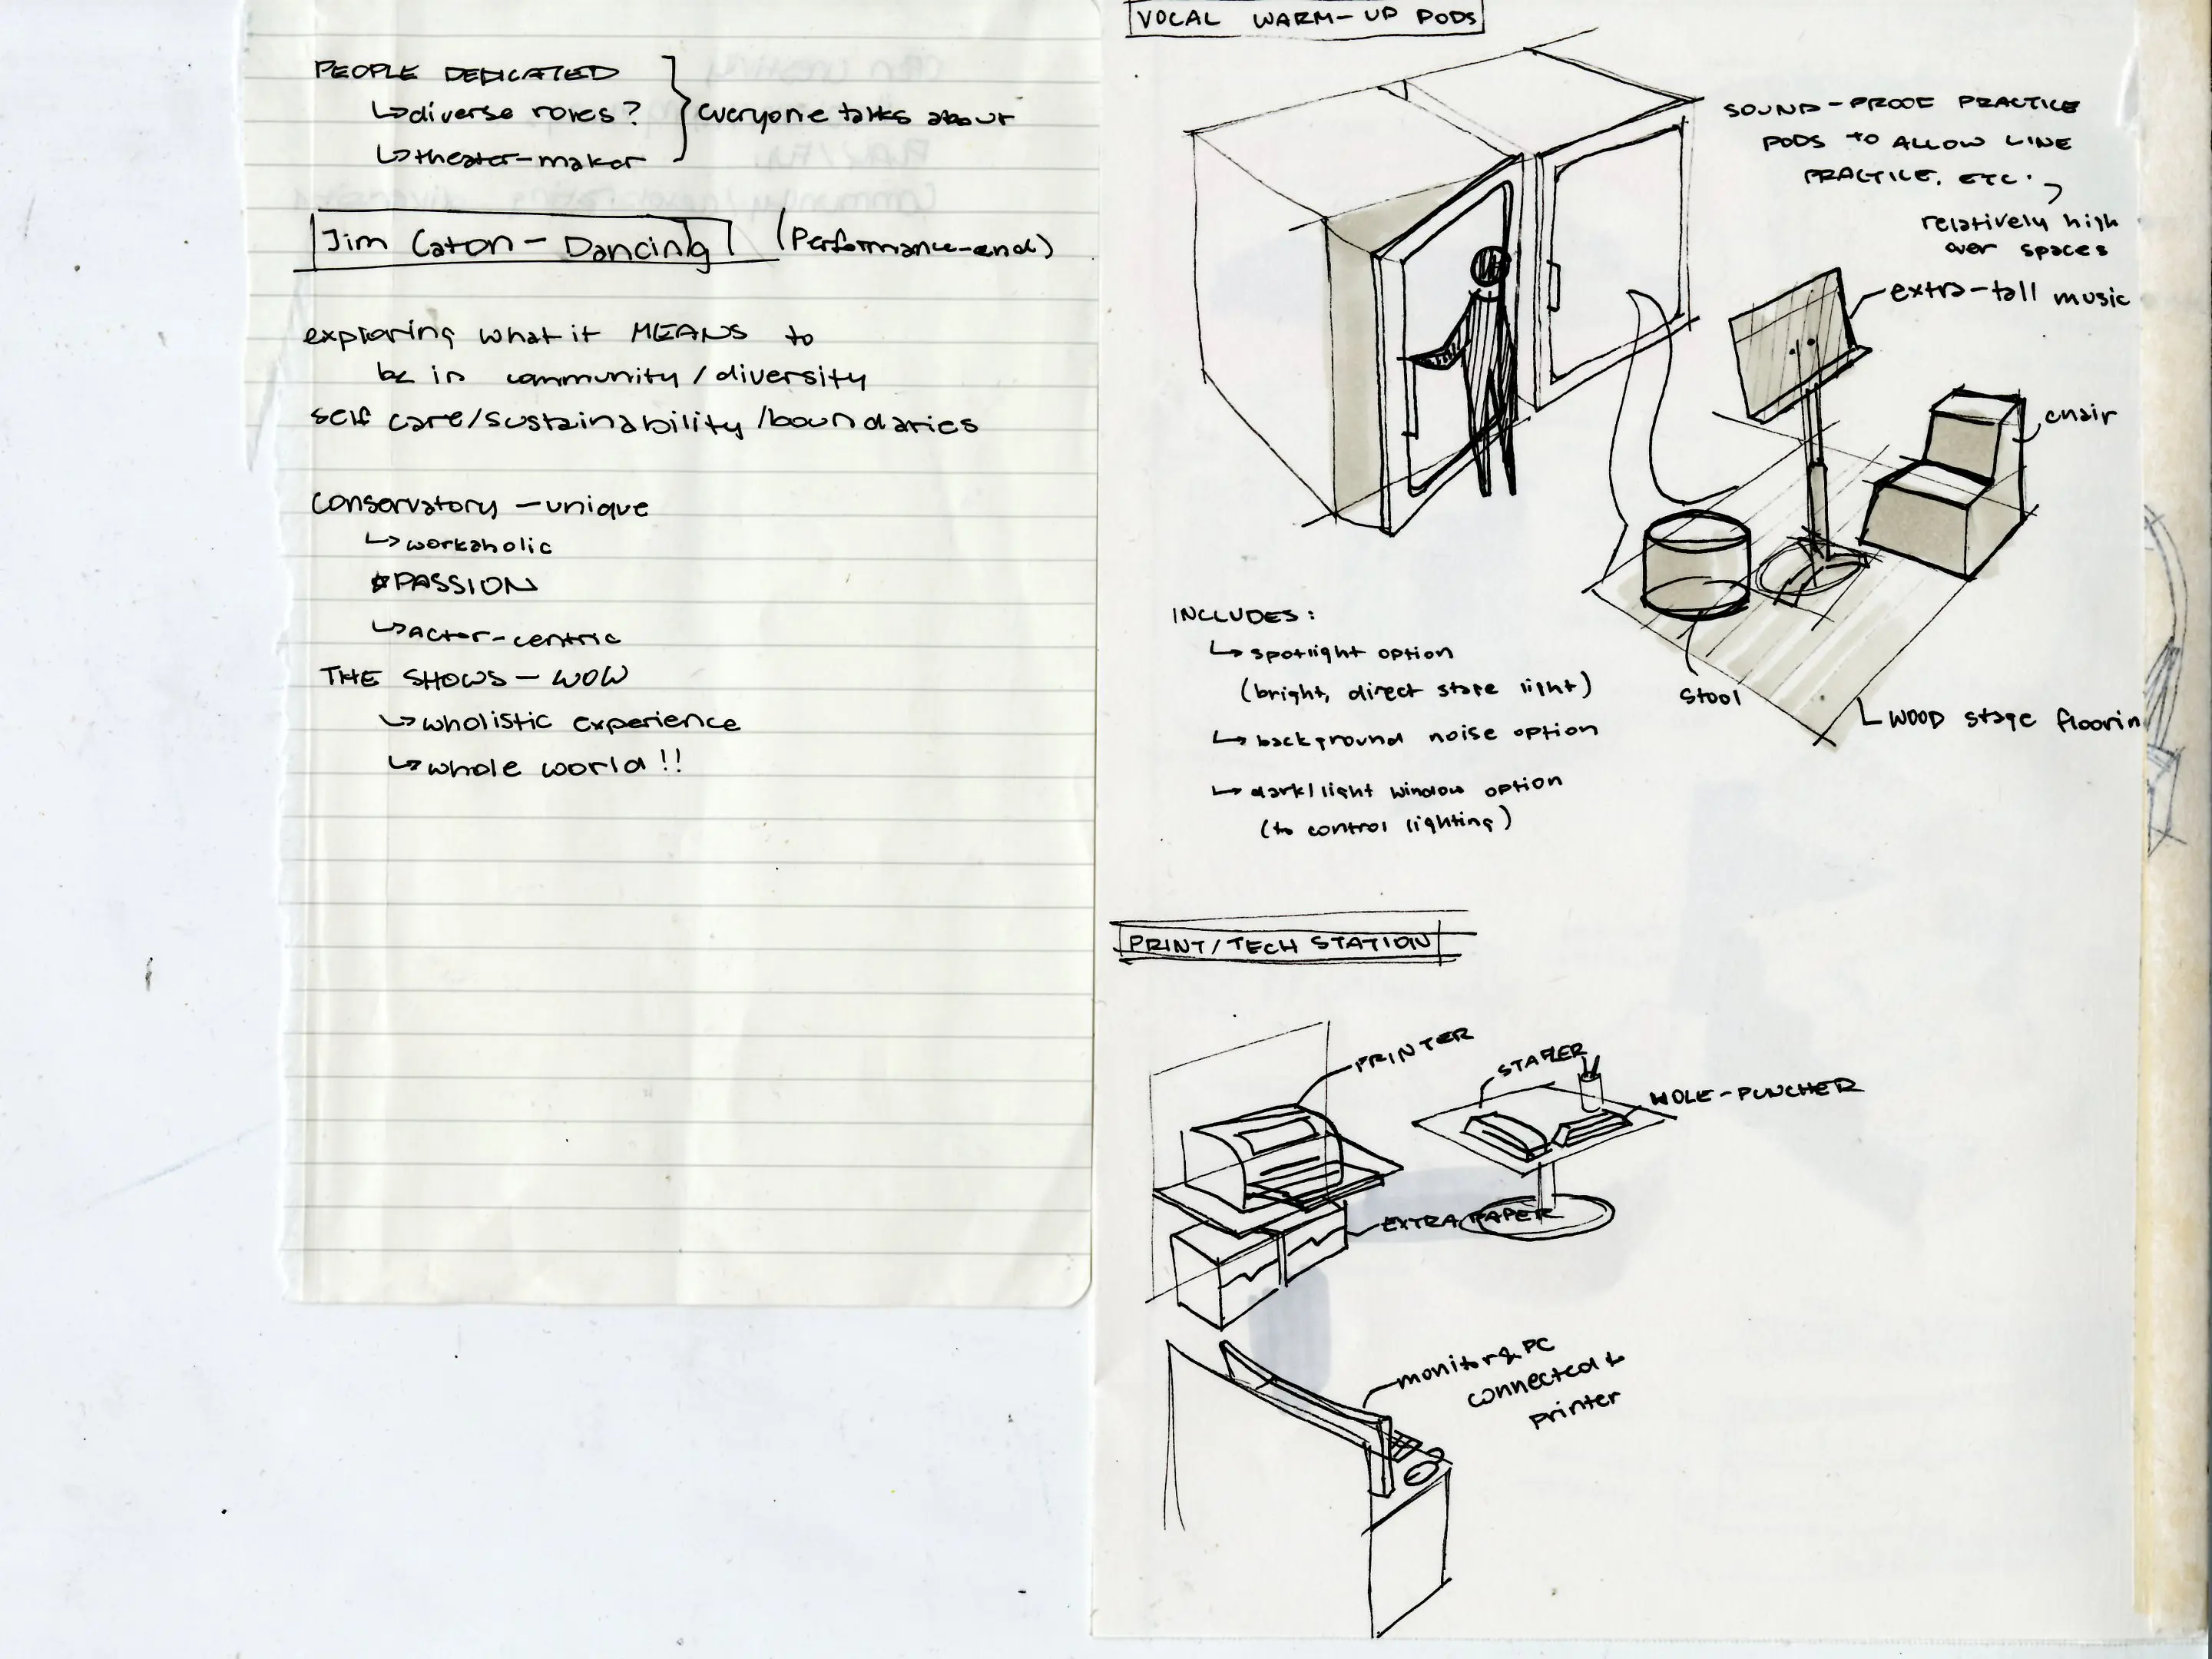 PEOPLE DEDICATED
↳diverse roles?
↳theater-maker
everyone talks about
Jim Caton - Dancing (Performance-end)
exploring what it MEANS to
be in community/diversity
self care/sustainability/boundaries
Conservatory - unique
↳workaholic
*PASSION
↳actor-centric
THE SHOWS - WOW
↳wholistic experience
↳whole world!!
VOCAL WARM-UP PODS
SOUND-PROOF PRACTICE
PODS to ALLOW LINE
PRACTICE, ETC.
relatively high
over spaces
extra-tall music
chair
stool
WOOD stage floorin
INCLUDES:
↳spotlight option
(bright, direct stage light)
↳background noise option
↳dark/light window option
(to control lighting)
PRINT/TECH STATION
PRINTER
STAPLER
HOLE-PUNCHER
EXTRA PAPER
monitor & PC
connected to
printer